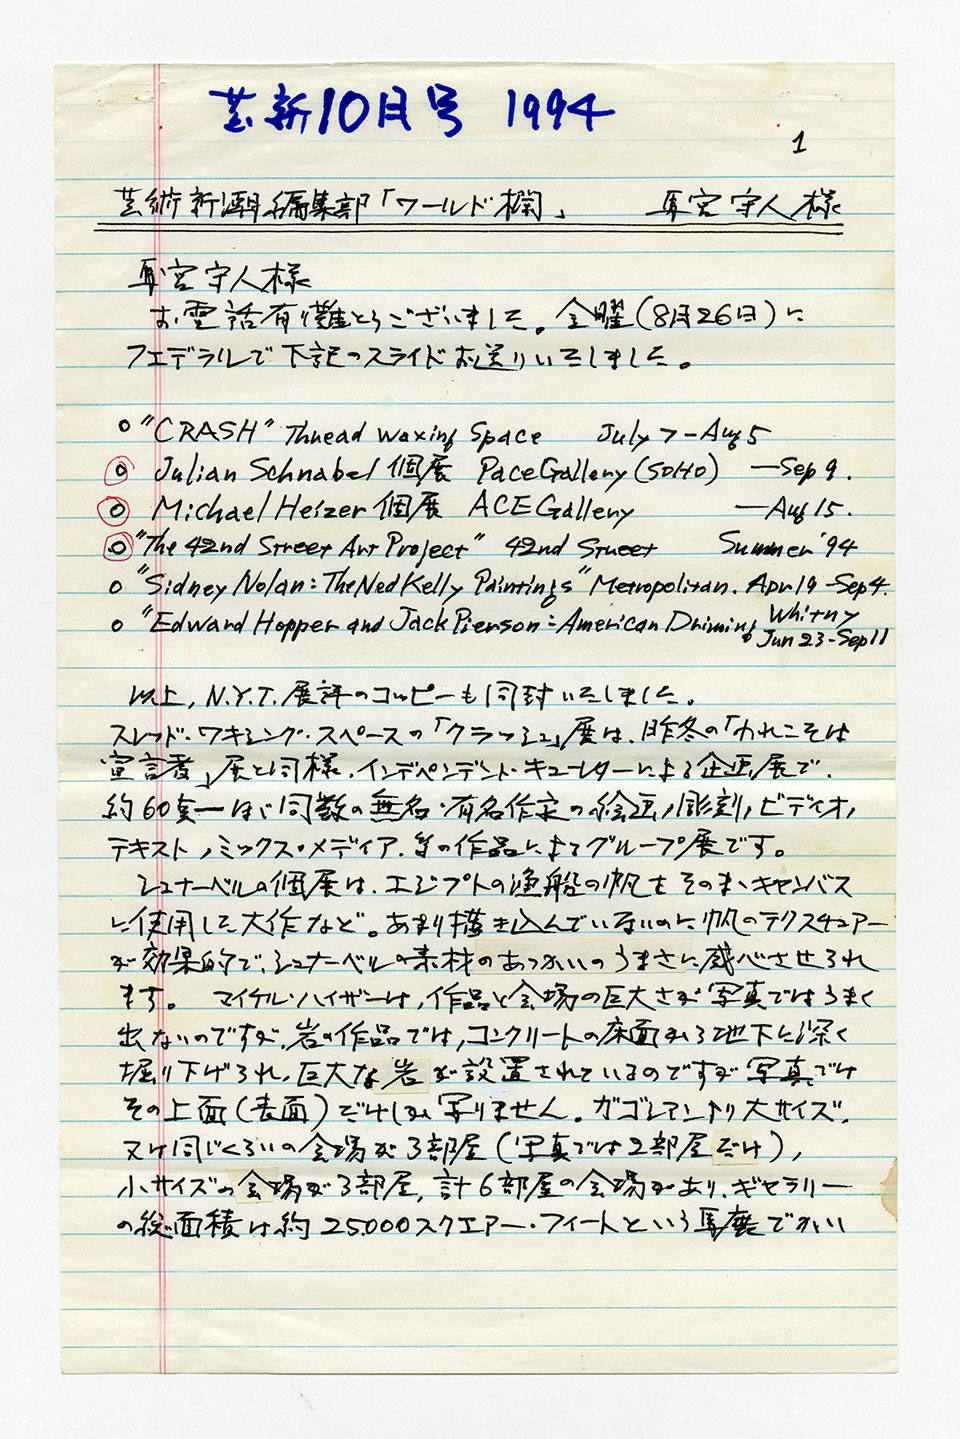 芸新10月号 1994
1
芸術新潮編集部「ワールド欄」 耳宮守人様
耳宮守人様
お電話有難とうございました。金曜(8月26日)に
フェデラルで下記のスライドお送りいたしました。
○ "CRASH" Thread Waxing Space July 7-Aug 5
○ Julian Schnabel 個展 Pace Gallery (SOHO) —Sep 9.
○ Michael Heizer 個展 ACE Gallery —Aug 15.
○ "The 42nd Street Art Project" 42nd Street Summer '94
○ "Sidney Nolan: The Ned Kelly Paintings" Metropolitan. Apr 19 -Sep 4.
○ "Edward Hopper and Jack Pierson: American Driming Whitny
Jun 23-Sep 11
以上, N.Y.T. 展評のコッピーも同封いたしました。
スレッド・ワキシング・スペースの「クラッシュ」展は、昨冬の「われこそは
宣言者」展と同様、インデペンデント・キューレターによる企画展で、
約60点一ほぼ同数の無名・有名作家の絵画,彫刻,ビディオ,
テキスト,ミックス・メディア.等の作品によるグループ展です。
シュナーベルの個展は、エジプトの漁船の帆をそのまゝキャンバス
に使用した大作など。あまり描き込んでいないのに帆のテクスチュアー
が効果的で、シュナーベルの素材のあつかいのうまさに感心させられ
ます。 マイケル・ハイザーは,作品と会場の巨大さが写真ではうまく
出ないのですが、岩の作品では,コンクリートの床面から地下に深く
堀り下げられ,巨大な岩が設置されているのですが写真では
その上面(表面)だけしか写りません。ガゴシアンより大サイズ,
又は同じくらいの会場が3部屋(写真では2部屋だけ),
小サイズの会場が3部屋,計6部屋の会場があり,ギャラリー
の総面積は約25,000スクエアー・フィートという馬鹿でかい